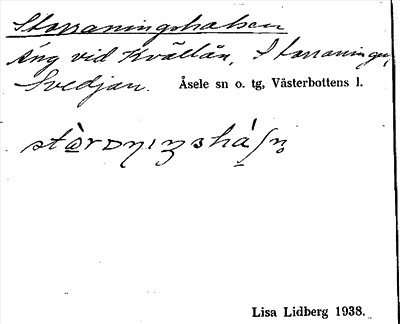 Storraningshalsen
Äng vid Kvällån, Storraningen,
Svedjan. Åsele sn o. tg, Västerbottens l.
Lisa Lidberg 1938.